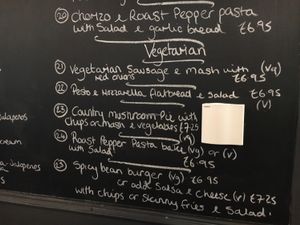 (20) Chorizo & Roast Pepper pasta
with Salad & garlic bread £6.95
Vegetarian
(21) Vegetarian Sausage & mash with (Vg)
red onions £6.95
(22) Pesto & Mozzarella flatbread & Salad £6.95
(V)
(23) Country mushroom Pie with
Chips or mash & vegetables £7.25
(V)
(24) Roast Pepper Pasta bake (Vg) or (V)
with Salad £6.95
(23) Spicy bean burger (Vg)
or add Salsa & Cheese (V) £7.25
with chips or Skinny Fries & Salad.